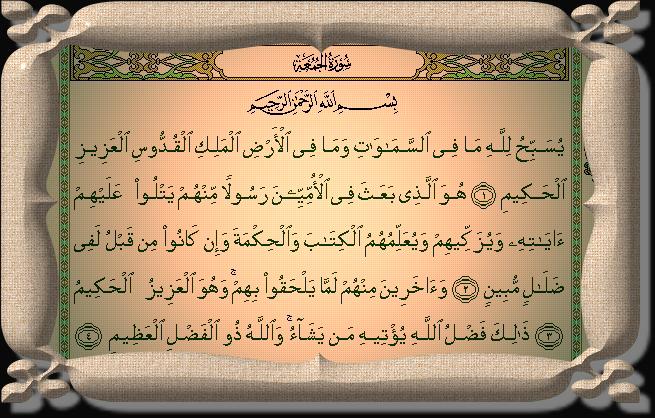 سُورَةُ الجُمُعَةِ
بِسْمِ اللَّهِ الرَّحْمَٰنِ الرَّحِيمِ
يُسَبِّحُ لِلَّهِ مَا فِى ٱلسَّمَـٰوَٰتِ وَمَا فِى ٱلْأَرْضِ ٱلْمَلِكِ ٱلْقُدُّوسِ ٱلْعَزِيزِ
ٱلْحَكِيمِ ١ هُوَ ٱلَّذِى بَعَثَ فِى ٱلْأُمِّيِّـۧنَ رَسُولًا مِّنْهُمْ يَتْلُوا۟ عَلَيْهِمْ
ءَايَـٰتِهِۦ وَيُزَكِّيهِمْ وَيُعَلِّمُهُمُ ٱلْكِتَـٰبَ وَٱلْحِكْمَةَ وَإِن كَانُوا۟ مِن قَبْلُ لَفِى
ضَلَـٰلٍ مُّبِينٍ ٢ وَءَاخَرِينَ مِنْهُمْ لَمَّا يَلْحَقُوا۟ بِهِمْ ۚ وَهُوَ ٱلْعَزِيزُ ٱلْحَكِيمُ
٣ ذَٰلِكَ فَضْلُ ٱللَّهِ يُؤْتِيهِ مَن يَشَآءُ ۚ وَٱللَّهُ ذُو ٱلْفَضْلِ ٱلْعَظِيمِ ٤